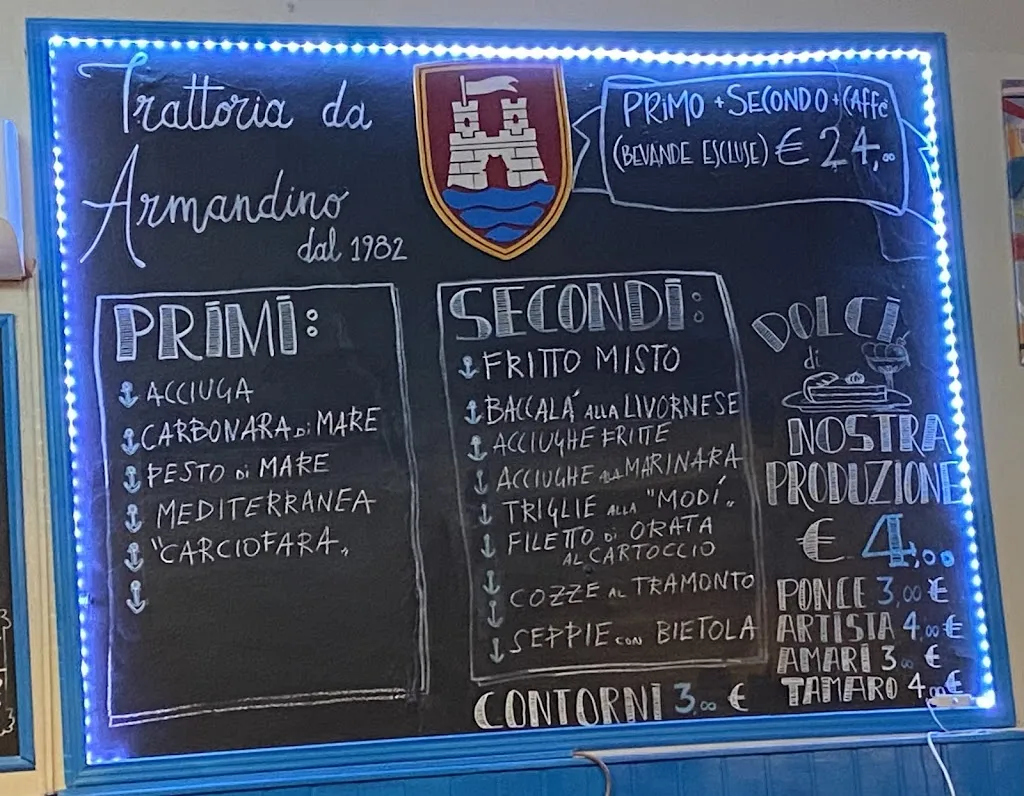 Trattoria da
Armandino
dal 1982
PRIMO + SECONDO + CAFFè
(BEVANDE ESCLUSE) € 24,00
PRIMI:
ACCIUGA
CARBONARA Di MARE
PESTO Di MARE
MEDITERRANEA
"CARCIOFARA„
SECONDI:
FRITTO MISTO
BACCALA' ALLA LIVORNESE
ACCIUGHE FRITTE
ACCIUGHE ALLA MARINARA
TRIGLIE ALLA "MODÍ„
FILETTO Di ORATA
AL CARTOCCIO
COZZE AL TRAMONTO
SEPPIE CON BIETOLA
CONTORNI 3,00 €
DOLCI
di
NOSTRA
PRODUZIONE
€ 4,00
PONCE 3,00 €
ARTISTA 4,00 €
AMARI 3,00 €
TAMARO 4,00 €